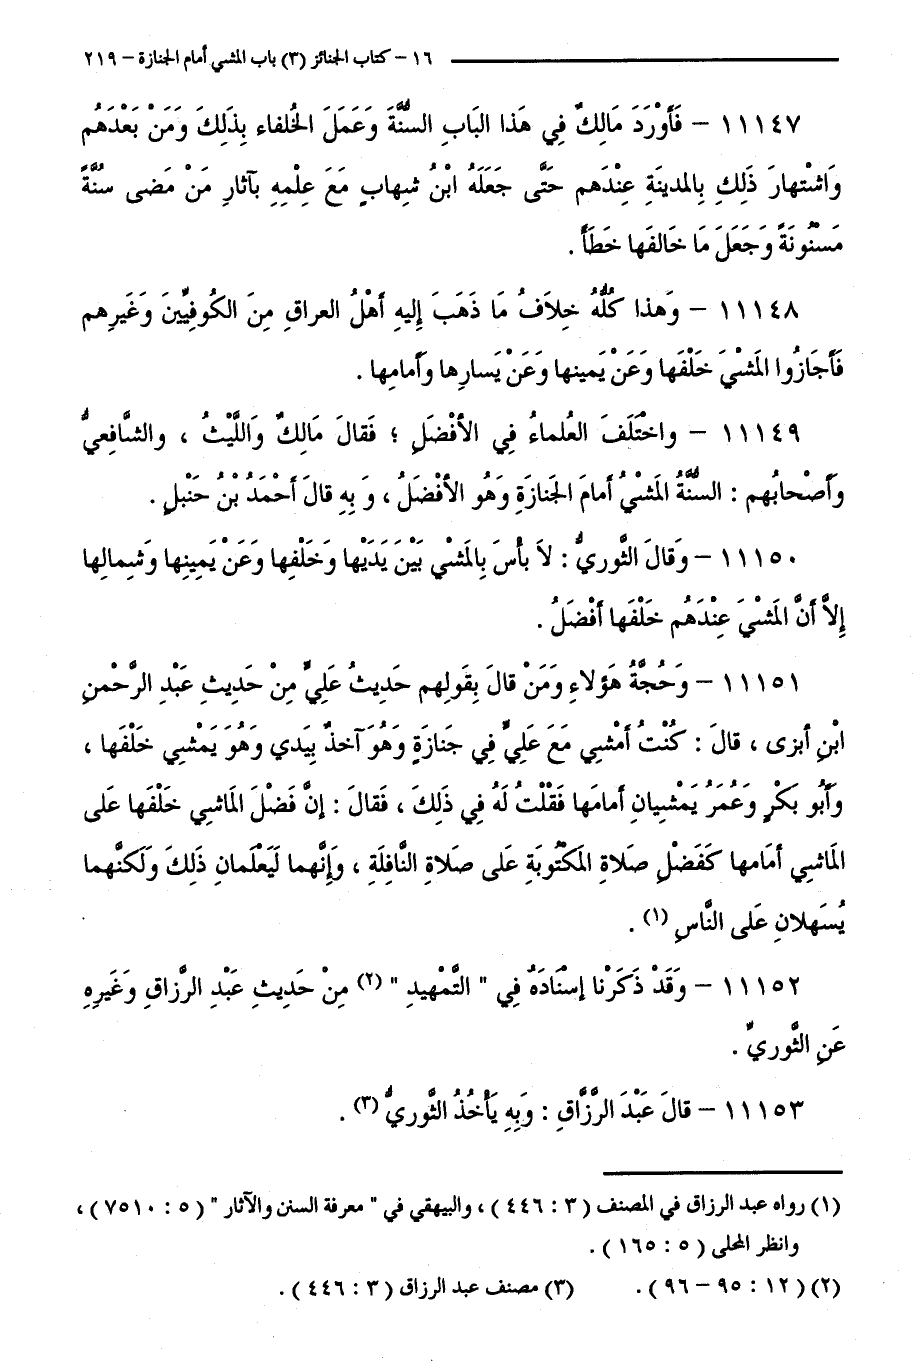 ١٦ – كتاب الجنائز (٣) باب المشي أمام الجنازة – ٢١٩
١١١٤٧ – فَأَوْرَدَ مَالِكٌ فِي هَذا البَابِ السنَّةَ وَعَمَلَ الخُلفاء بِذَلِكَ وَمَنْ بَعْدَهُم
وَاشْتهارَ ذَلِكِ بِالمدينَةِ عِنْدَهم حَتَّى جَعَلَهُ ابْنُ شِهابٍ مَعَ عِلْمِهِ بآثارِ مَنْ مَضى سُنَّةً
مَسْنُونَةً وَجَعَلَ مَا خَالفَها خَطَأً .
١١١٤٨ – وَهذا كُلُّهُ خِلافُ مَا ذَهَبَ إليهِ أهْلُ العراقِ مِنَ الكُوفيِّينَ وَغَيرِهم
فَأَجَازُوا المَشْيَ خَلْفَها وَعَنْ يَمينها وَعَنْ يَسارِها وأمامِها .
١١١٤٩ – واخْتَلَفَ العُلماءُ فِي الأفْضَلِ ؛ فَقالَ مَالِكٌ وَاللَّيْثُ ، والشَّافِعيُّ
وَأصْحابُهم : السنَّةُ المَشْيُ أمامَ الجَنازَةِ وَهُو الأفْضَلُ ، وَ بِهِ قالَ أحْمَدُ بْنُ حَنْبلٍ .
١١١٥٠ – وَقالَ الثَّوريُّ : لاَ بأسَ بِالمَشْيِ بَيْنَ يَدَيْها وَخَلْفِها وَعَنْ يَمِينِها وَشِمالِها
إِلاَّ أنَّ المَشْيَ عِنْدَهُم خَلْفَها أفْضَلُ .
١١١٥١ – وَحُجَّةُ هَؤلاءِ وَمَنْ قالَ بِقَولِهم حَدِيثُ عَلِيٍّ مِنْ حَدِيثِ عَبْدِ الرَّحْمنِ
ابْنِ أبزى ، قالَ : كُنْتُ أمْشِي مَعَ عَليٍّ فِي جَنازَةٍ وَهُوَ آخذٌ بِيَدي وَهُوَ يَمْشي خَلْفَها ،
وَأَبُو بَكْرٍ وَعُمَرُ يَمْشِيانِ أمامَها فَقُلْتُ لَهُ فِي ذَلِكَ ، فَقالَ : إنَّ فَضْلَ المَاشي خَلْفَها عَلى
المَاشِي أمَامها كَفَضْلِ صَلاةِ المَكْتُوبَةِ عَلى صَلاةِ النَّافِلَةِ ، وَإِنَّهما لَيَعْلَمانِ ذَلِكَ وَلَكنَّهما
يُسَهلانِ عَلى النَّاسِ (١) .
١١١٥٢ – وَقَدْ ذَكَرْنا إسْنَادَهُ فِي " التَّمْهيدِ " (٢) مِنْ حَديثِ عَبْدِ الرَّزاقِ وَغَيرِهِ
عَنِ الثَّوريِّ .
١١١٥٣ – قالَ عَبْدَ الرَّزَّاقِ : وَبِهِ يَأْخُذُ الثَّوريُّ (٣) .
(١) رواه عبد الرزاق في المصنف ( ٣ : ٤٤٦ ) ، والبيهقي في " معرفة السنن والآثار " ( ٥ : ٧٥١٠ ) ،
وانظر المحلى ( ٥ : ١٦٥ ) .
(٢) ( ١٢ : ٩٥ – ٩٦ ) . (٣) مصنف عبد الرزاق ( ٣ : ٤٤٦ ) .